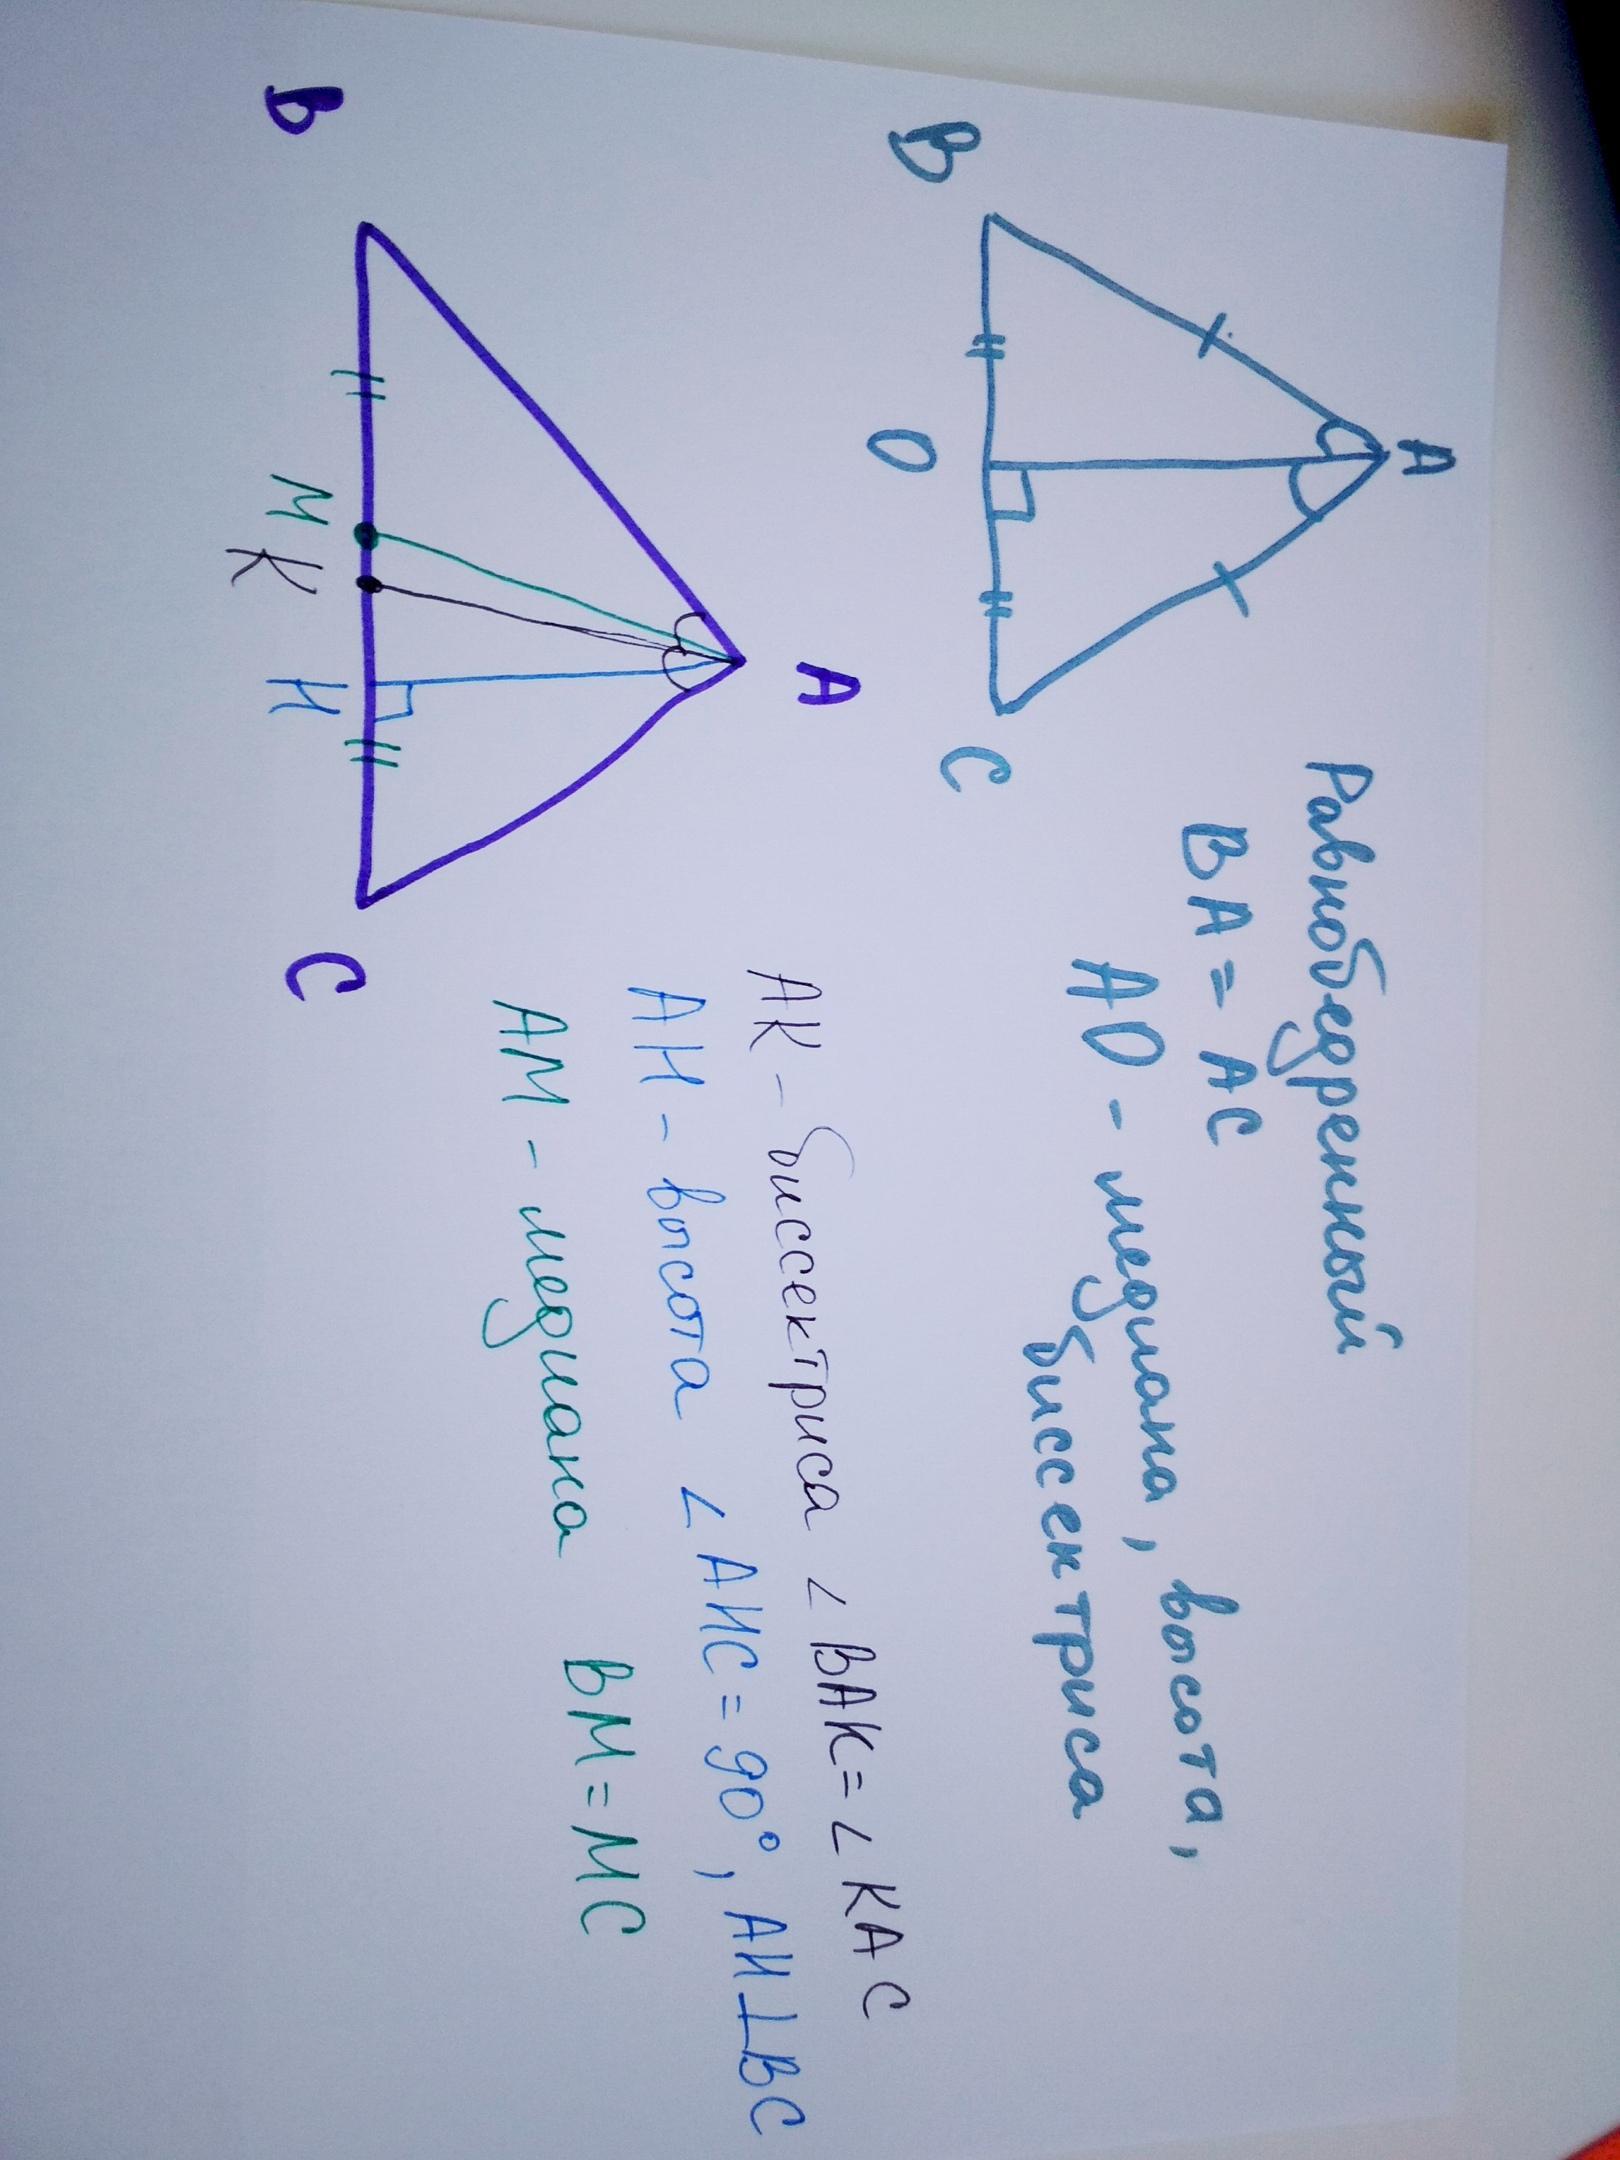 A
B
O
C
Равнобедренный
BA = AC
AO - медиана, высота,
биссектриса
A
B
M
K
H
C
AK - биссектриса ∠ BAK = ∠ KAC
AH - высота ∠ AHC = 90°, AH ⊥ BC
AM - медиана BM = MC